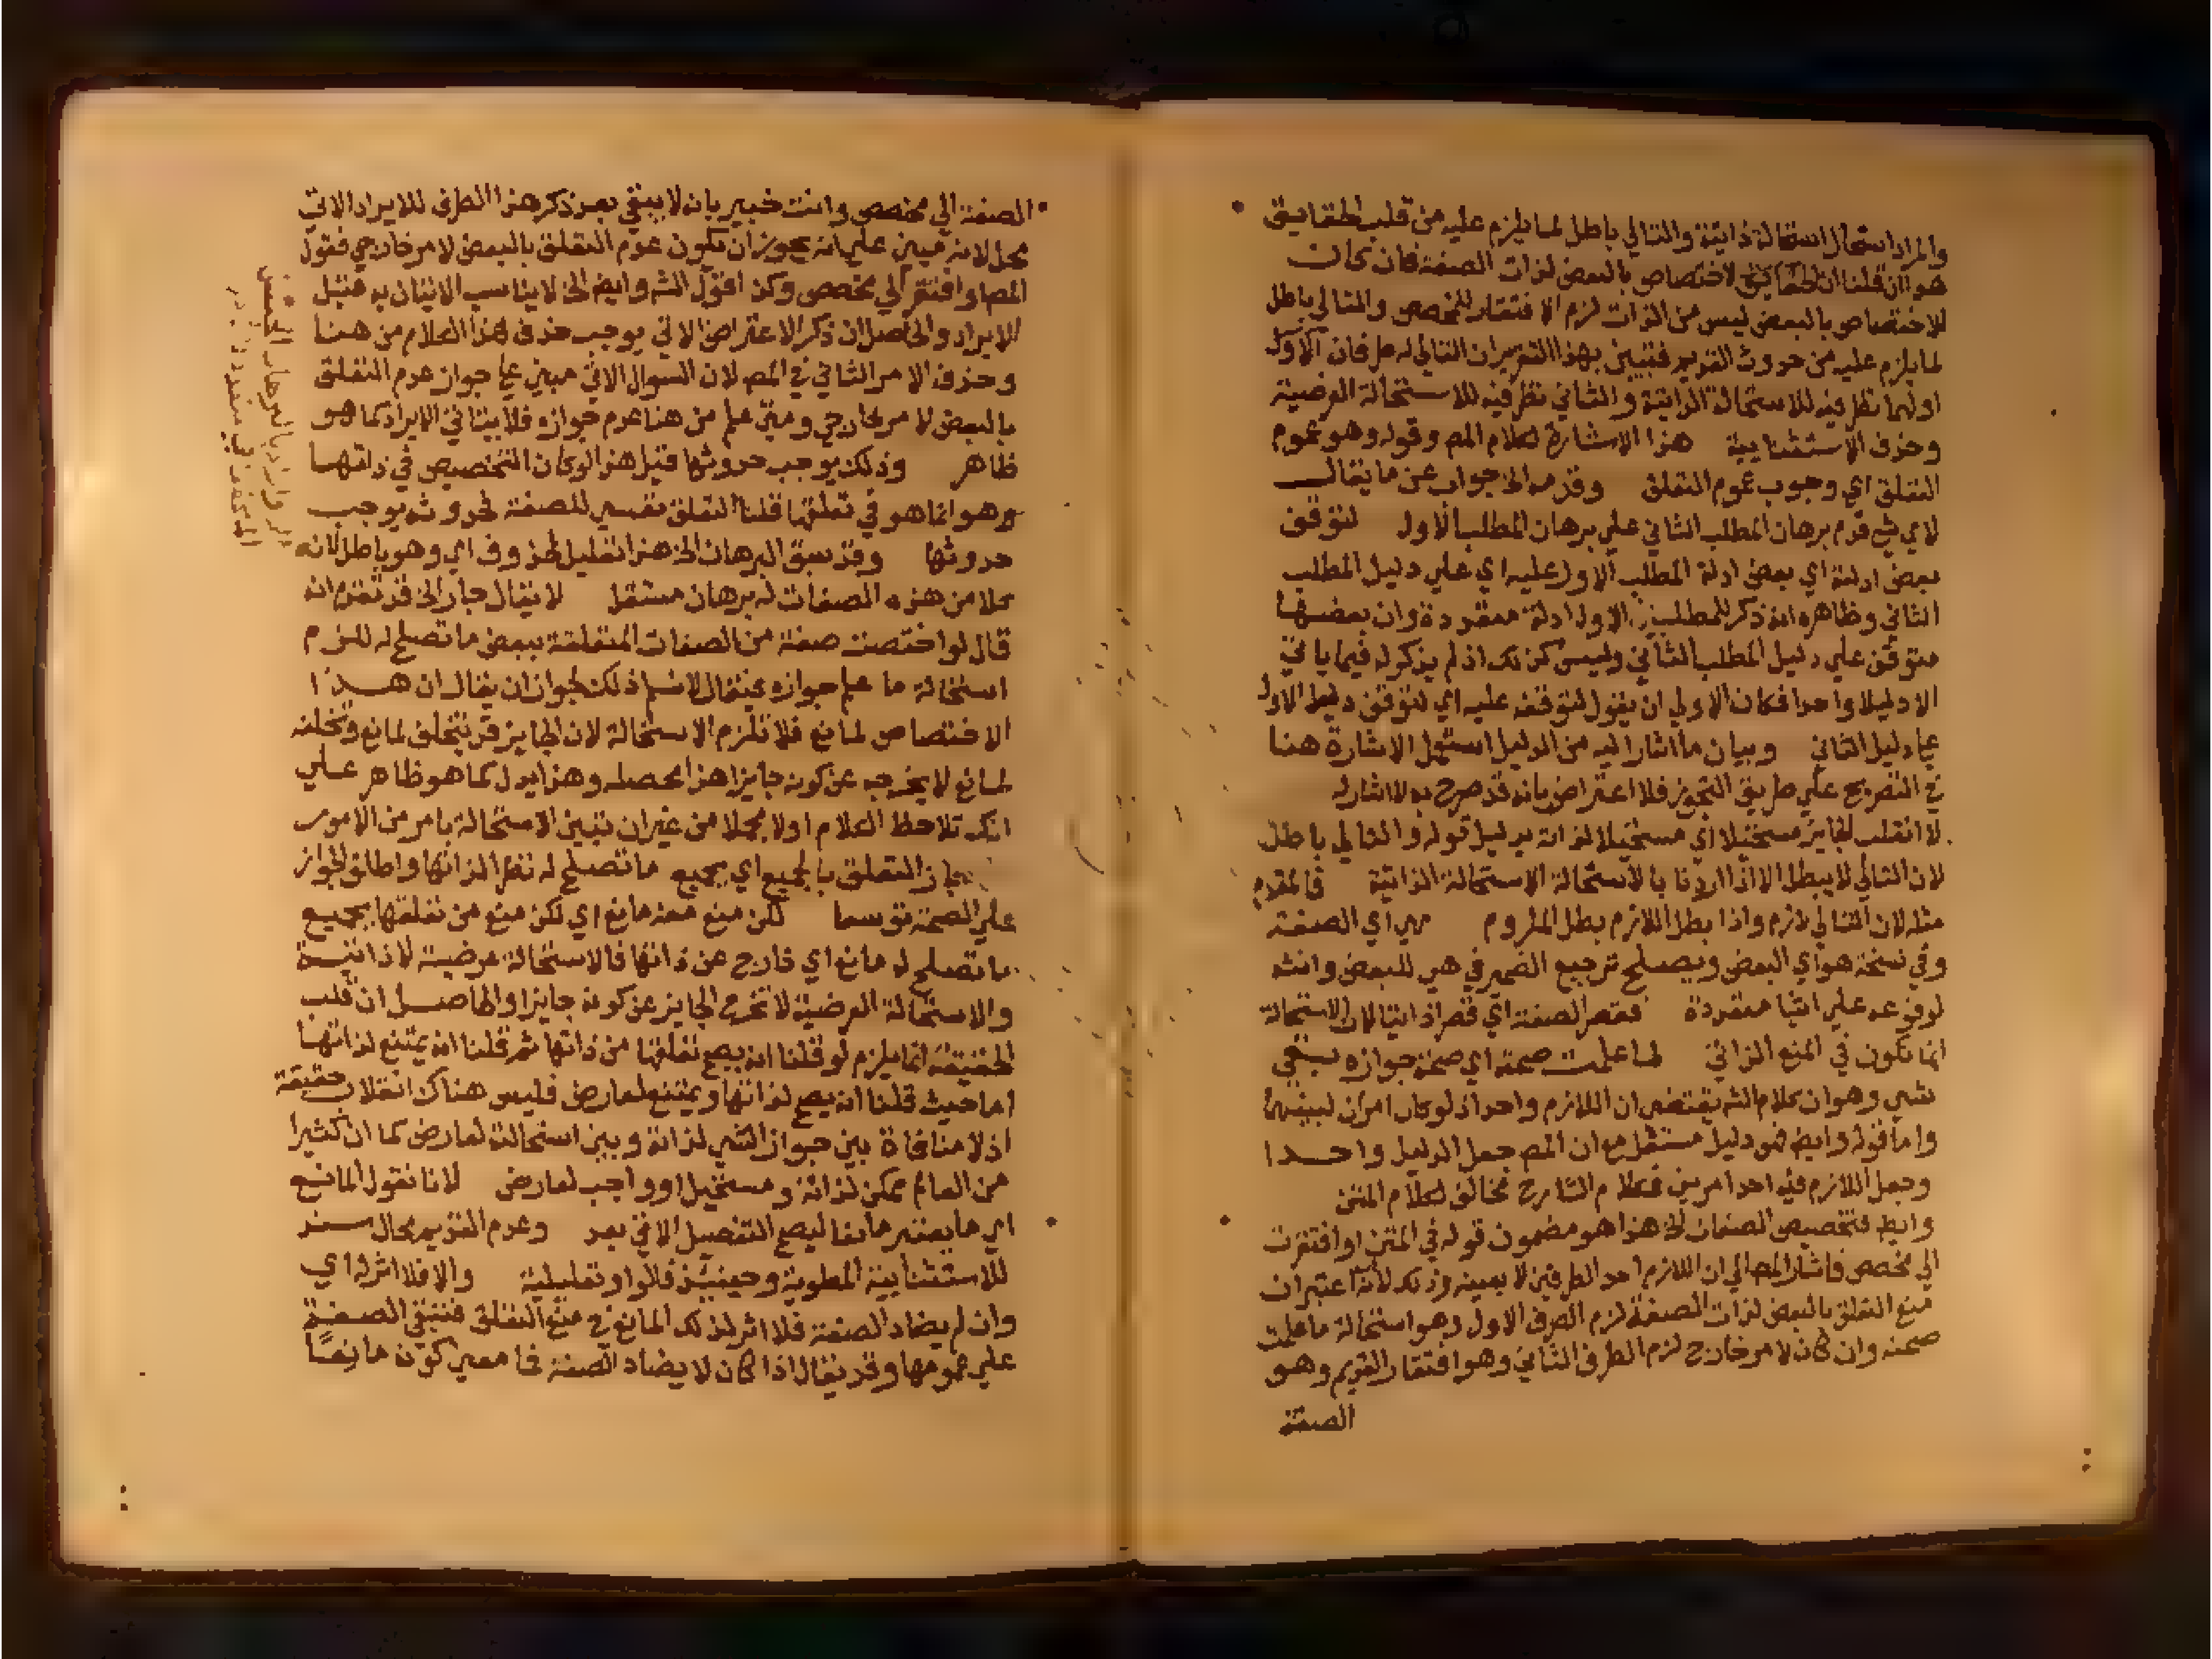 والمراد استحال استحالة ذاتية والتالي باطل لما يلزم عليه من قلب الحقايق
هو ان قلنا ان الاختصاص بالبعض لذات الصفة فان كان
الاختصاص بالبعض ليس من الذات لزم الافتقار للمخصص والتالي باطل
لما يلزم عليه من حدوث القديم فتبين بهذا التقرير ان التالي له طرفان الاول
اولهما نظر فيه للاستحالة الذاتية والثاني نظر فيه للاستحالة العرضية
وحذف الاستثنايية هذا الاشارة لكلام المص وقوله وهو عموم
التعلق اي وجوب عموم التعلق وقدم الخ جواب عن ما يقال
لاي شي قدم برهان المطلب الثاني علي برهان المطلب الاول لتوقف
بعض ادلته اي بعض ادلة المطلب الاول عليه اي علي دليل المطلب
الثاني وظاهره انه ذكر للمطلب الاول ادلة متعددة وان بعضها
متوقف علي دليل المطلب الثاني وليس كذلك اذ لم يذكر له فيما ياتي
الا دليلا واحدا فكان الاولي ان يقول لتوقفه عليه اي لتوقف دليل الاول
علي دليل الثاني وبيان ما اشار اليه من الدليل استعمل الاشارة هنا
في التصريح علي طريق التجوز فلا اعتراض بانه قد صرح به لا اشار له
لانقلب الجايز مستحيلا اي مستحيلا لذاته بدليل قوله والتالي باطل
لان التالي لا يبطل الا اذا اردنا بالاستحالة الاستحالة الذاتية فالمقدم
مثله لان التالي لازم واذا بطل اللازم بطل الملزوم هي اي الصفة
وفي نسخة هو اي البعض ويصلح ترجيع الضمير في هي للبعض وانث
لوقوعه علي اشيا متعددة فقصر الصفة اي قصرا ذاتيا لان الاستحالة
انما تكون في المنع الذاتي لما علمت صحته اي صحة جوازه بقي
شي وهو ان كلام الش يقتضي ان اللازم واحد اذ لو كان امران لبينهما
واما قوله وايض فهو دليل مستقل مع ان المص جعل الدليل واحدا
وجعل اللازم فيه احد امرين فكلام الشارح مخالف لكلام المتن
وايض فتخصيص الصفات الخ هذا هو مضمون قوله في المتن او افتقرت
الي مخصص فاشار المص الي ان اللازم احد الطرفين لا بعينه وذلك لانه اعتبر ان
منع التعلق بالبعض لذات الصفة لزم الطرف الاول وهو استحالة ما علمت
صحته وان كان لامر خارج لزم الطرف الثاني وهو افتقار القديم وهو
الصفة
الصفة الي مخصص وانت خبير بانه لا يبقي بعد ذكر هذا الطرف للايراد الاتي
محل لانه مبين علي انه يجوز ان يكون عدم التعلق بالبعض لامر خارجي فقول
المص او افتقر الي مخصص وكذا قول الش وايض الخ لا يناسب الاتيان به قبل
الايراد والحاصل ان ذكر الاعتراض الاتي يوجب حذف هذا الكلام من هنا
وحذف الامر الثاني في المص لان السوال الاتي مبين علي جواز عدم التعلق
بالبعض لامر خارجي ومتي علم من هنا عدم جوازه فلا يتاتي الايراد كما هو
ظاهر وذلك يوجب حدوثها قيل هذا لو كان التخصيص في ذاتها
وهو انما هو في تعلقها قلنا التعلق نفسي للصفة فحدوثه يوجب
حدوثها وقد سبق البرهان الخ هذا تعليل لمحذوف اي وهو باطل لانه
كلا من هذه الصفات له برهان مستقل لا يقال جاز الخ قد تقدم انه
قال لو اختصت صفة من الصفات المتعلقة ببعض ما تصلح له للزم
استحالة ما علم جوازه فيقال لا نسلم ذلك لجواز ان يقال ان هذا
الاختصاص لمانع فلا تلزم الاستحالة لان الجايز قد يتخلف لمانع وتخلفه
لمانع لا يخرجه عن كونه جايزا هذا محصله وهذا يدل كما هو ظاهر علي
انك تلاحظ الكلام اولا مجملا من غير ان تبين الاستحالة بامر من الامور
جاز التعلق بالجميع اي بجميع ما تصلح له نظرا لذاتها واطلق الجواز
علي الصحة توسعا لكن منع منه مانع اي لكن منع من تعلقها بجميع
ما تصلح له مانع اي خارج عن ذاتها فالاستحالة عرضية لا ذاتية
والاستحالة العرضية لا تخرج الجايز عن كونه جايزا والحاصل ان قلب
الحقيقة انما يلزم لو قلنا انه يصح تعلقها من ذاتها ثم قلنا انه يمتنع لذاتها
اما حيث قلنا انه يصح لذاتها ويمتنع لعارض فليس هناك انقلاب حقيقة
اذ لا منافاة بين جواز الشي لذاته وبين استحالته لعارض كما ان كثيرا
من العالم ممكن لذاته ومستحيل او واجب لعارض لانا نقول المانع
اي ما يعتبر مانعا ليصح التفصيل الاتي بعد وعدم القديم محال سند
للاستثنايية المطوية وحينئذ فالواو تعليلية والا فلا اثر له اي
وان لم يضاد الصفة فلا اثر لذلك المانع في منع التعلق فتبقي الصفة
علي عمومها وقد يقال اذا كان لا يضاد الصفة فما معني كونه مانعا